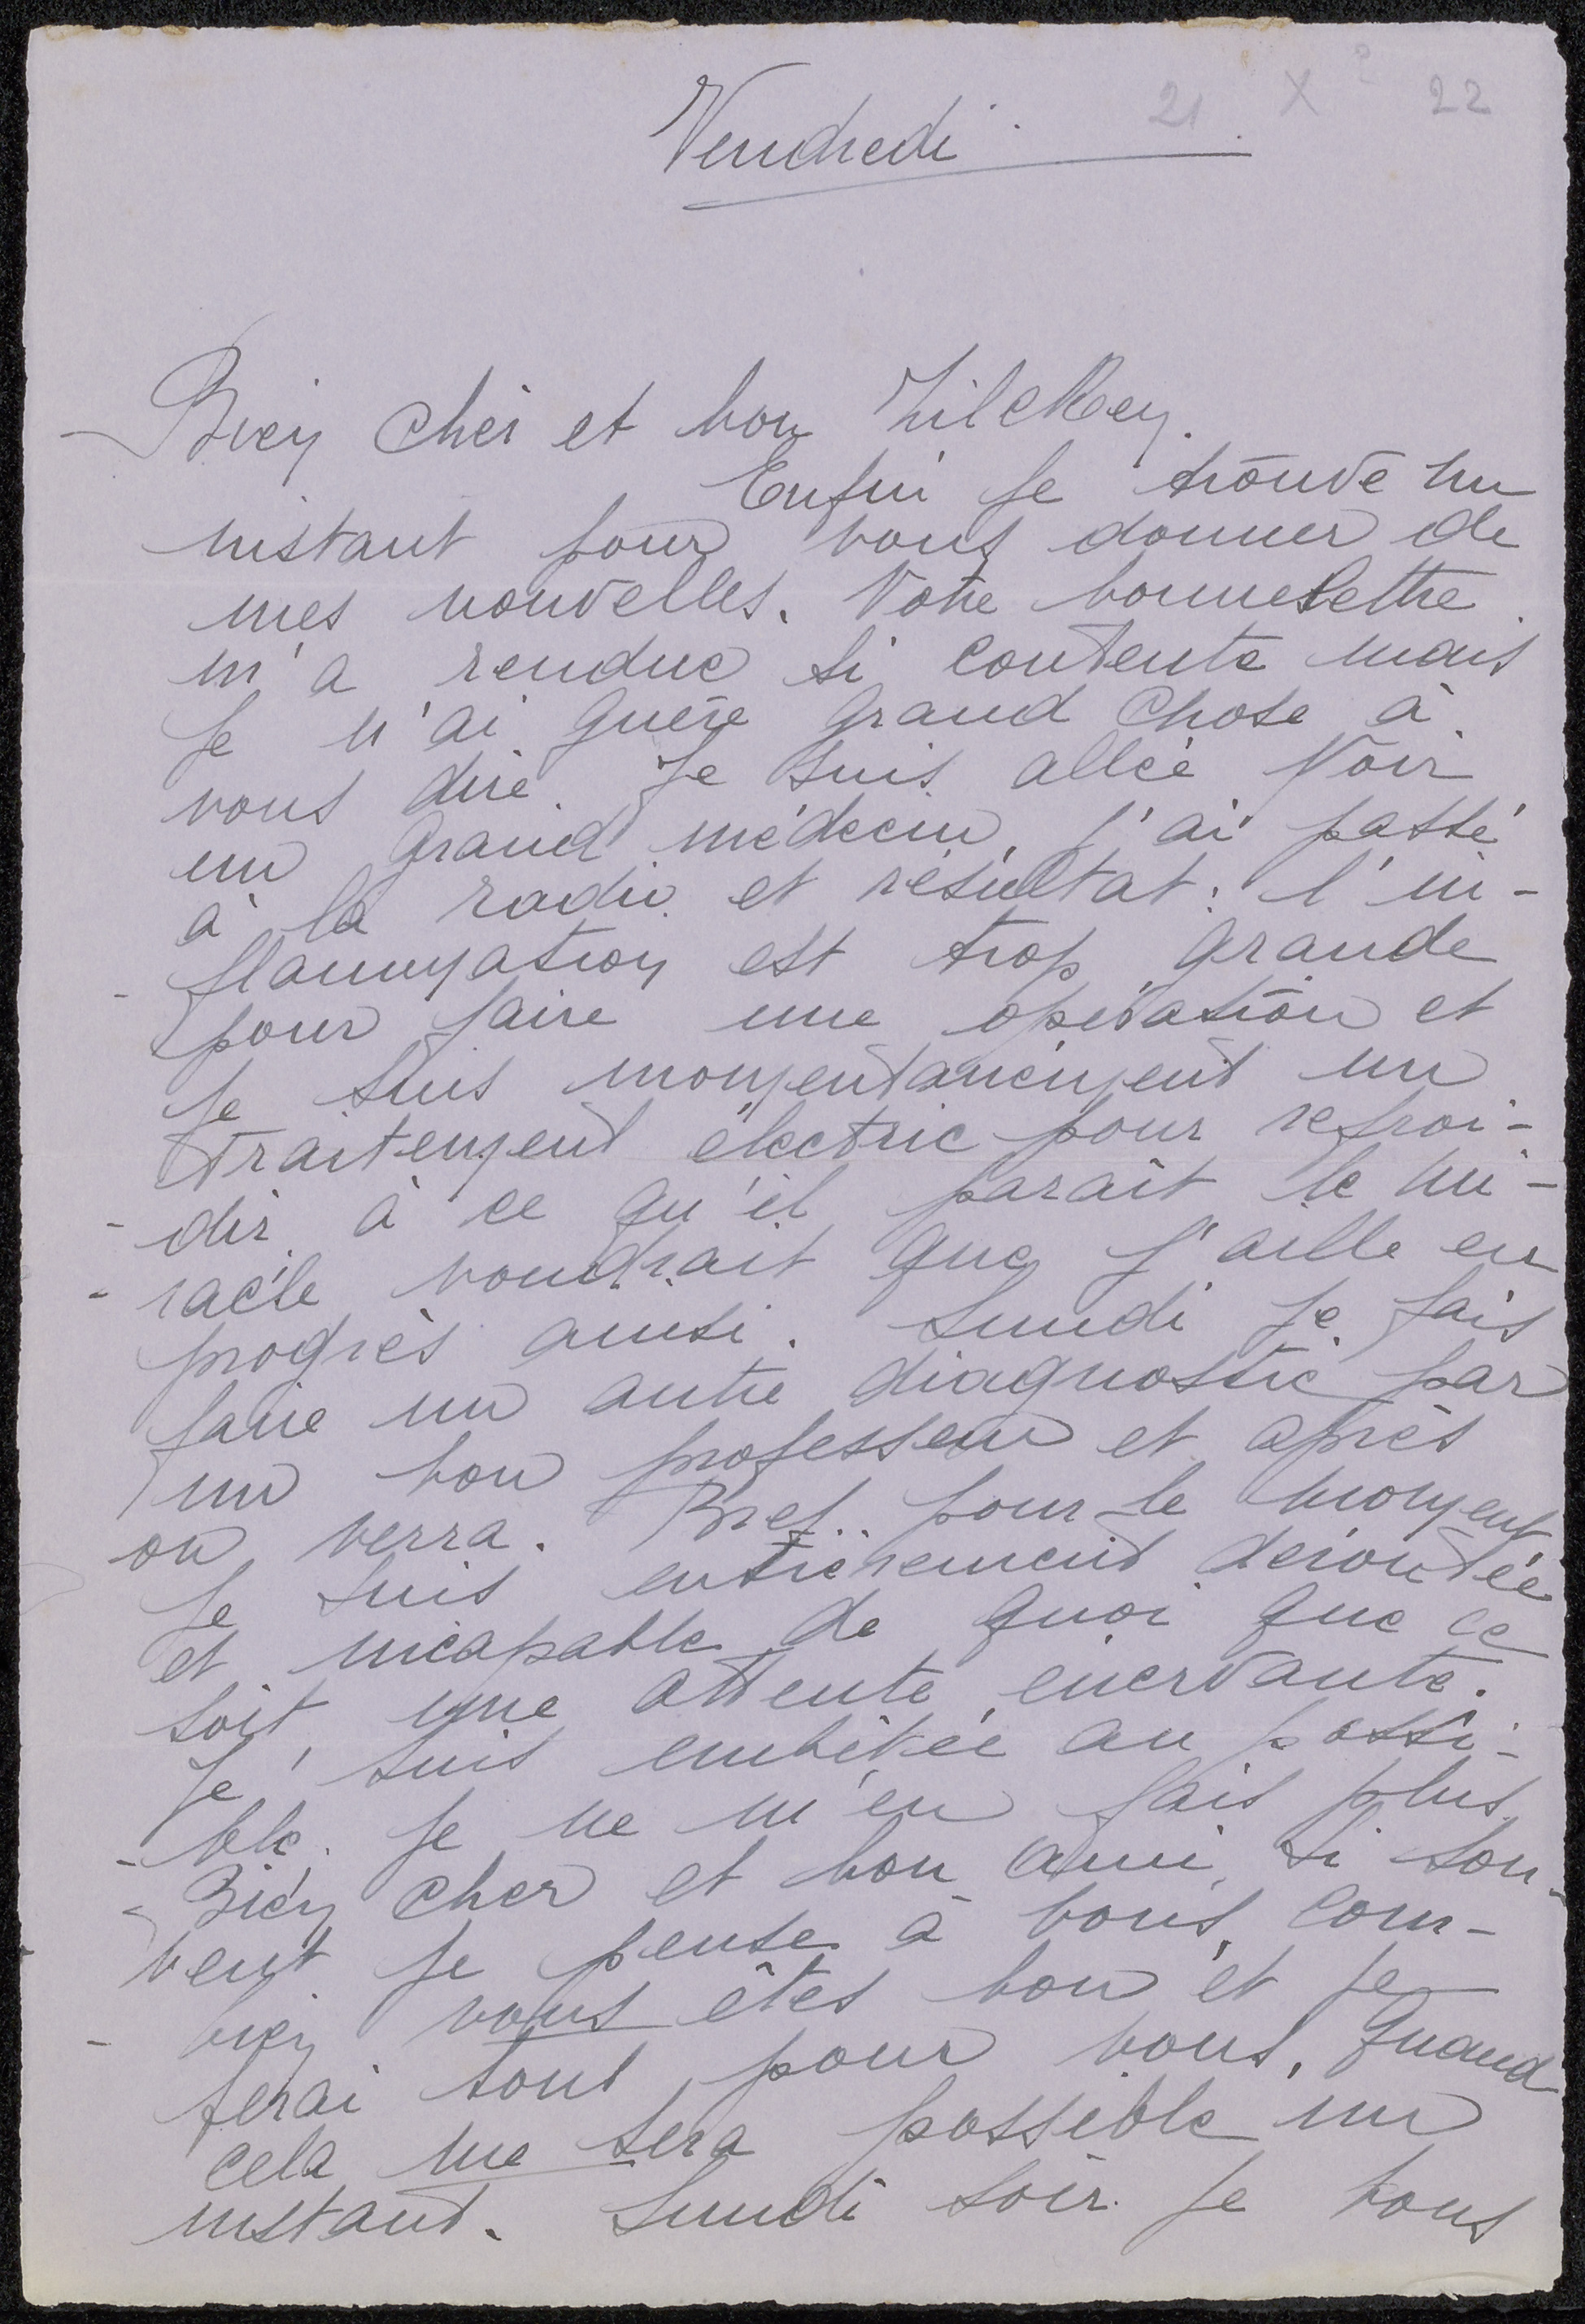 21 X ? 22
Vendredi.
Bien cher et bon Zilcken.
Enfin je trouve un
instant pour vous donner de
mes nouvelles. Votre bonne lettre
m'a rendue si contente mais
je n'ai guère grand chose à
vous dire. Je suis allée voir
un grand médecin, j'ai passé
à la radio et résultat: l'in-
flammation est trop grande
pour faire une opération et
je suis momentanément un
traitement électric pour refroi-
dir à ce qu'il parait le mi-
racle voudrait que j'aille en
progrès ainsi. Lundi je fais
faire un autre diagnostic par
un bon professeur et après
on verra. Bref.. pour le moment
je suis entièrement deroutée
et incapable de quoi que ce
soit, une attente enervante.
Je suis embêtée au possi-
ble. je ne m'en fais plus.
Bien cher et bon ami, si sou-
vent je pense à vous, com-
bien vous êtes bon et je
ferai tout pour vous, quand
cela me sera possible un
instant. Lundi soir je vous